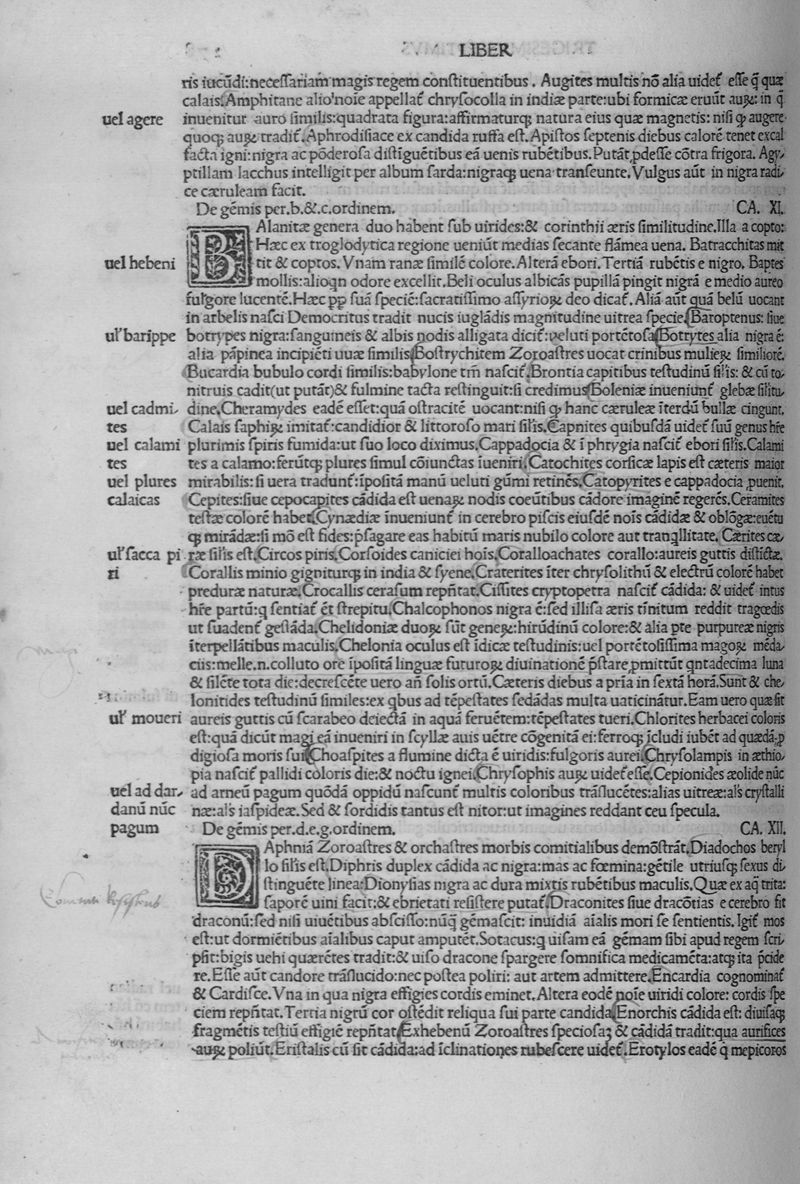 LIBER
ris iucūdi:necessariam magis regem constituentibus . Augites multis nō alia uidet̄ esse q̄ quæ
calais.Amphitane alio noīe appellat̄ chrysocolla in indiæ parte:ubi formicæ eruūt auꝝ: in q̄
uel agere
inuenitur auro similis:quadrata figura:affirmaturqꝫ natura eius quæ magnetis: nisi ꝙ augere
quoqꝫ auꝝ tradit̄.Aphrodisiace ex candida ruffa est.Apistos septenis diebus calorē tenet excal
facta igni:nigra ac pōderosa distīguētibus eā uenis rubētibus.Putāt ꝓdesse cōtra frigora. Agy
ptillam Iacchus intelligit per album sarda:nigraqꝫ uena transeunte.Vulgus aūt in nigra radi
ce cæruleam facit.
De gēmis per.b.&.c.ordinem. CA. XI.
BAlanitæ genera duo habent sub uirides:& corinthii æris similitudine.Illa a copto:
Hæc ex troglodytica regione ueniūt medias secante flāmea uena. Batracchitas mit
uel hebeni
tit & coptos. Vnam ranæ similē colore. Alterā ebori. Tertiā rubētis e nigro. Baptes
mollis:alioqn odore excellit.Beli oculus albicās pupillā pingit nigrā e medio aureo
fulgore lucentē.Hæc ꝓp suā speciē:sacratissimo assyrioꝝ deo dicat̄. Aliā aūt quā belū uocant
in arbelis nasci Democritus tradit nucis iuglādis magnitudine uitrea specie.Baroptenus: siue
ul' barippe
botrypes nigra:sanguineis & albis nodis alligata dicit̄:ueluti portētosa.Botrytes alia nigra ē:
alia pāpinea incipiēti uuæ similis.Bostrychitem Zoroastres uocat crinibus mulieꝝ similiorē.
Bucardia bubulo cordi similis:babylone tm̄ nascit̄.Brontia capitibus testudinū sīlis: & cū to
nitruis cadit(ut putāt)& fulmine tacta restinguit:si credimus.Boleniæ inueniunt̄ glebæ sīlitu
uel cadmi
dine.Cheramydes eadē esset:quā ostracitē uocant:nisi ꝙ hanc cæruleæ īterdū bullæ cingunt.
tes
Calais saphiꝝ imitat̄:candidior & littoroso mari sīlis.Capnites quibusdā uidet̄ suū genus hr̄e
uel calami
plurimis spiris fumida:ut suo loco diximus.Cappadocia & ī phrygia nascit̄ ebori sīlis.Calami
tes
tes a calamo:ferūtqꝫ plures simul cōiunctas īueniri.Catochites corsicæ lapis est cæteris maior
uel plures
mirabilis:si uera tradunt̄:īpositā manū ueluti gūmi retinēs.Catopyrites e cappadocia ꝓuenit.
calaicas
Cepites:siue cepocapites cādida est uenaꝝ nodis coeūtibus cādore imaginē regerēs.Ceramites
testæ colorē habet.Cynædiæ īneniunt̄ in cerebro piscis eiusdē noīs cādidæ & oblōgæ:euētu
qꝫ mirādæ:si mō est fides:p̄sagare eas habitū maris nubilo colore aut tranq̄llitate. Cærites cæ
ul' sacca pi
ræ sīlis est.Circos piris.Corsoides caniciei hoīs.Coralloachates corallo:aureis guttis distīctæ.
ri
Corallis minio gigniturqꝫ in india & syene.Craterites īter chrysolithū & electrū colorē habet
preduræ naturæ.Crocallis cerasum rep̄ntat.Cissites cryptopetra nascit̄ cādida: & uidet̄ intus
hr̄e partū:q sentiat̄ ēt strepitu.Chalcophonos nigra ē:sed illisa æris tīnitum reddit tragœdis
ut suadent̄ gestāda.Chelidoniæ duoꝝ sūt geneꝝ:hirūdinū colore:& alia pte purpureæ nigris
īterpellātibus maculis.Chelonia oculus est īdicæ testudinis:uel portētosissima magoꝝ mēda
ciis:melle.n.colluto ore īpositā linguæ futuroꝝ diuinationē p̄stare ꝓmittūt qntadecima luna
& silēte tota die:decrescēte uero an̄ solis ortū.Cæteris diebus a p̄ria in sextā horā.Sunt & che
lonitides testudinū similes:ex qbus ad tēpestates sedādas multa uaticinātur.Eam uero quæ sit
ul' moueri
aureis guttis cū scarabeo deiectā in aquā feruētem:tēpestates tueri.Chlorites herbacei coloris
est:quā dicūt magi eā inueniri in scyllæ auis uētre cōgenitā ei:ferroqꝫ īcludi iubēt ad quædā ꝓ
digiosa moris sui.Choaspites a flumine dicta ē uiridis:fulgoris aurei.Chrysolampis in æthio
pia nascit̄ pallidi coloris die:& noctu ignei.Chrysophis auꝝ uidet̄ esse.Cepionides æolide nūc
uel ad dar
ad arneū pagum quōdā oppidū nascunt̄ multis coloribus trāslucētes:alias uitreæ:al's crystalli
danū nūc
næ:al's iaspideæ.Sed & sordidis tantus est nitor:ut imagines reddant ceu specula.
pagum
De gēmis per.d.e.g.ordinem. CA. XII.
DAphniā Zoroastres & orchastres morbis comitialibus demōstrāt.Diadochos beryl
lo sīlis est.Diphris duplex cādida ac nigra:mas ac fœmina:gētile utriusqꝫ sexus di
stinguēte linea:Dionysias nigra ac dura mixtis rubētibus maculis.Quæ ex aq̄ trita:
saporē uini facit:& ebrietati resistere putat̄.Draconites siue dracōtias e cerebro fit
draconū:sed nisi uiuētibus abscisso:nūq̄ gēmascit: inuidiā aīalis mori se sentientis. Igit̄ mos
est:ut dormiētibus aīalibus caput amputēt.Sotacus:q uisam eā gēmam sibi apud regem scri
psit:bigis uehi quærētes tradit:& uiso dracone spargere somnifica medicamēta:atqꝫ ita p̄cide
re.Esse aūt candore trāslucido:nec postea poliri: aut artem admittere.Encardia cognominat̄
& Cardisce. Vna in qua nigra effigies cordis eminet.Altera eodē noīe uiridi colore: cordis spe
ciem rep̄ntat.Tertia nigrū cor ostēdit reliqua sui parte candida.Enorchis cādida est: diuisaqꝫ
fragmētis testiū effigiē rep̄ntat.Exhebenū Zoroastres speciosaꝫ & cādidā tradit:qua aurifices
auꝝ poliūt.Eristalis cū sit cādida:ad īclinationes rubescere uidet̄.Erotylos eadē q̄ mepicoros